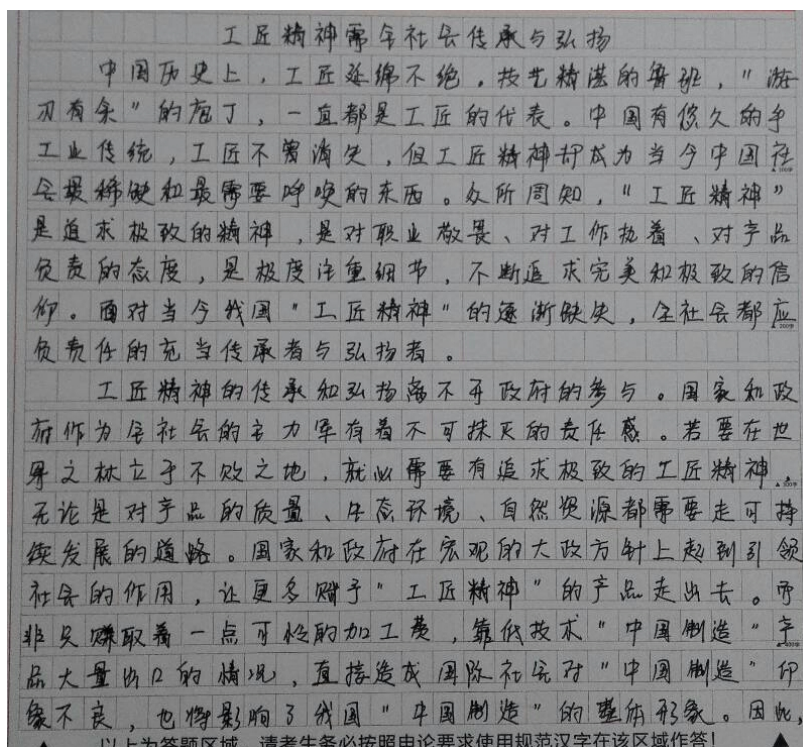 工匠精神需全社会传承与弘扬
中国历史上，工匠延绵不绝，技艺精湛的鲁班，"游
刃有余"的庖丁，一直都是工匠的代表。中国有悠久的手
工业传统，工匠不曾消失，但工匠精神却成为当今中国社
会最稀缺和最需要呼唤的东西。众所周知，"工匠精神"
是追求极致的精神，是对职业敬畏、对工作执着、对产品
负责的态度，是极度注重细节，不断追求完美和极致的信
仰。面对当今我国"工匠精神"的逐渐缺失，全社会都应
负责任的充当传承者与弘扬者。
工匠精神的传承和弘扬离不开政府的参与。国家和政
府作为全社会的主力军有着不可抹灭的责任感。若要在世
界之林立于不败之地，就必需要有追求极致的工匠精神，
无论是对产品的质量、生态环境、自然资源都需要走可持
续发展的道路。国家和政府在宏观的大政方针上起到引领
社会的作用，让更多赋予"工匠精神"的产品走出去。而
非只赚取着一点可怜的加工费，靠低技术"中国制造"产
品大量出口的情况，直接造成国际社会对"中国制造"印
象不良，也将影响了我国"中国制造"的整体形象。因此，
以上为答题区域，请考生务必按照申论要求使用规范汉字在该区域作答！